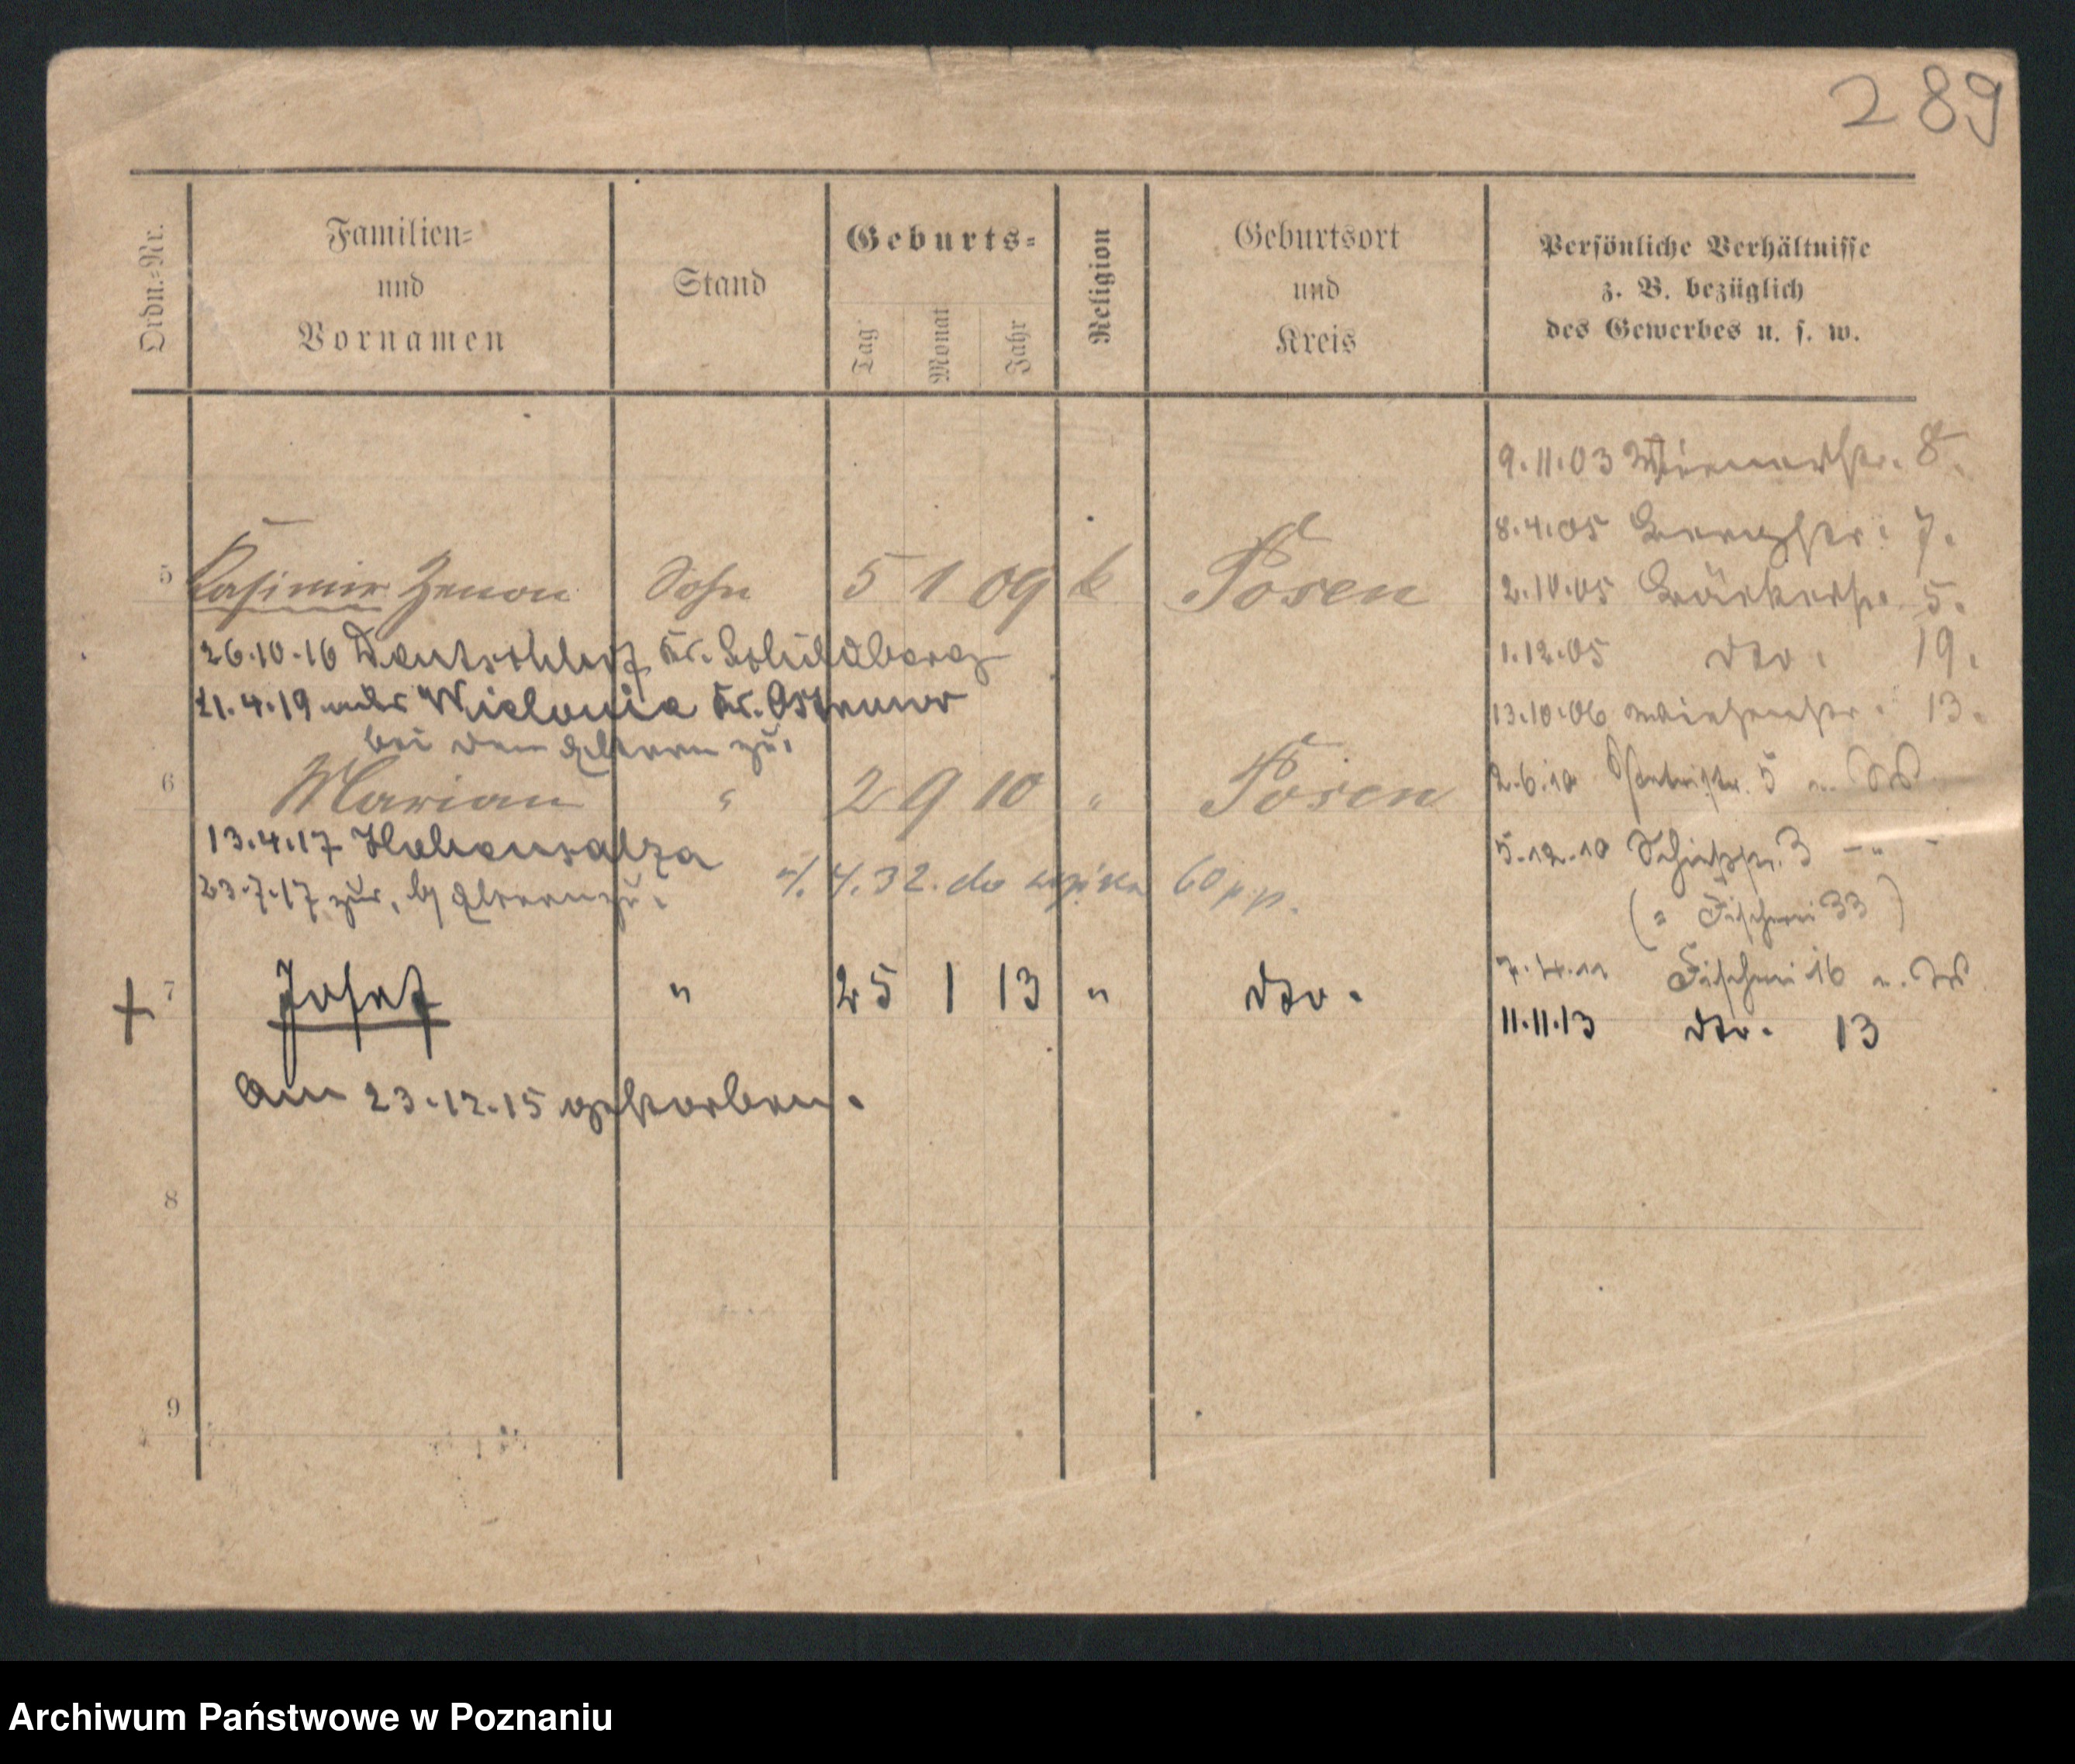 289
Ordn.-Nr.
Familien-
und
Vornamen
Stand
Geburts-
Tag
Monat
Jahr
Religion
Geburtsort
und
Kreis
Persönliche Verhältnisse
z. B. bezüglich
des Gewerbes u. s. w.
9.11.03 8.
8.4.05 7.
5 Kasimir Zenon Sohn 5 1 09 k Posen
2.10.05 Bäckerstr. 5.
26.10.16 Deutschhof Kr. Schildberg
1.12.05 dto. 19.
21.4.19 Kr. Ostrowo
13.10.06 Wiesenstr. 13.
bei den Eltern zu.
6 Marian " 2 9 10 " Posen
2.6.10 5
13.4.17 Hohensalza
5.12.10 Schießstr. 3 - " -
23.7.17 zur. b/ Eltern zu.
4.32. do 60
(= Fischerei 33)
7 Josef " 25 1 13 " dto.
Fischerei 16
11.11.13 dto. 13
Am 23.12.15 gestorben.
8
9
Archiwum Państwowe w Poznaniu